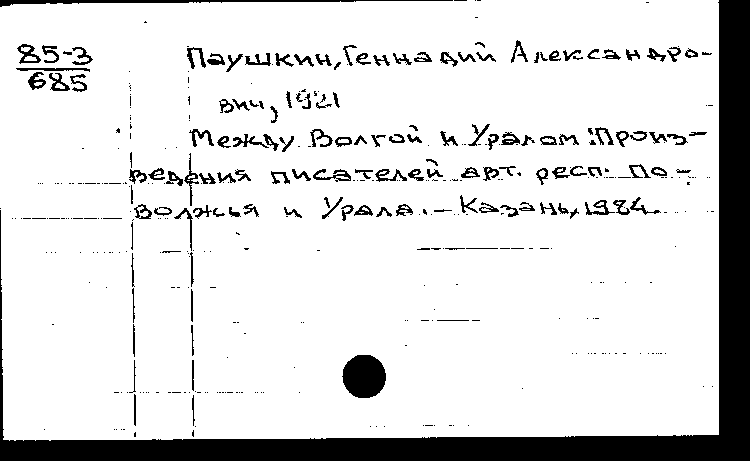 85-3
685
Паушкин, Геннадий Александро-
вич, 1921
Между Волгой и Уралом: Произ-
ведения писателей авт. респ. По-
волжья и Урала. - Казань, 1984.